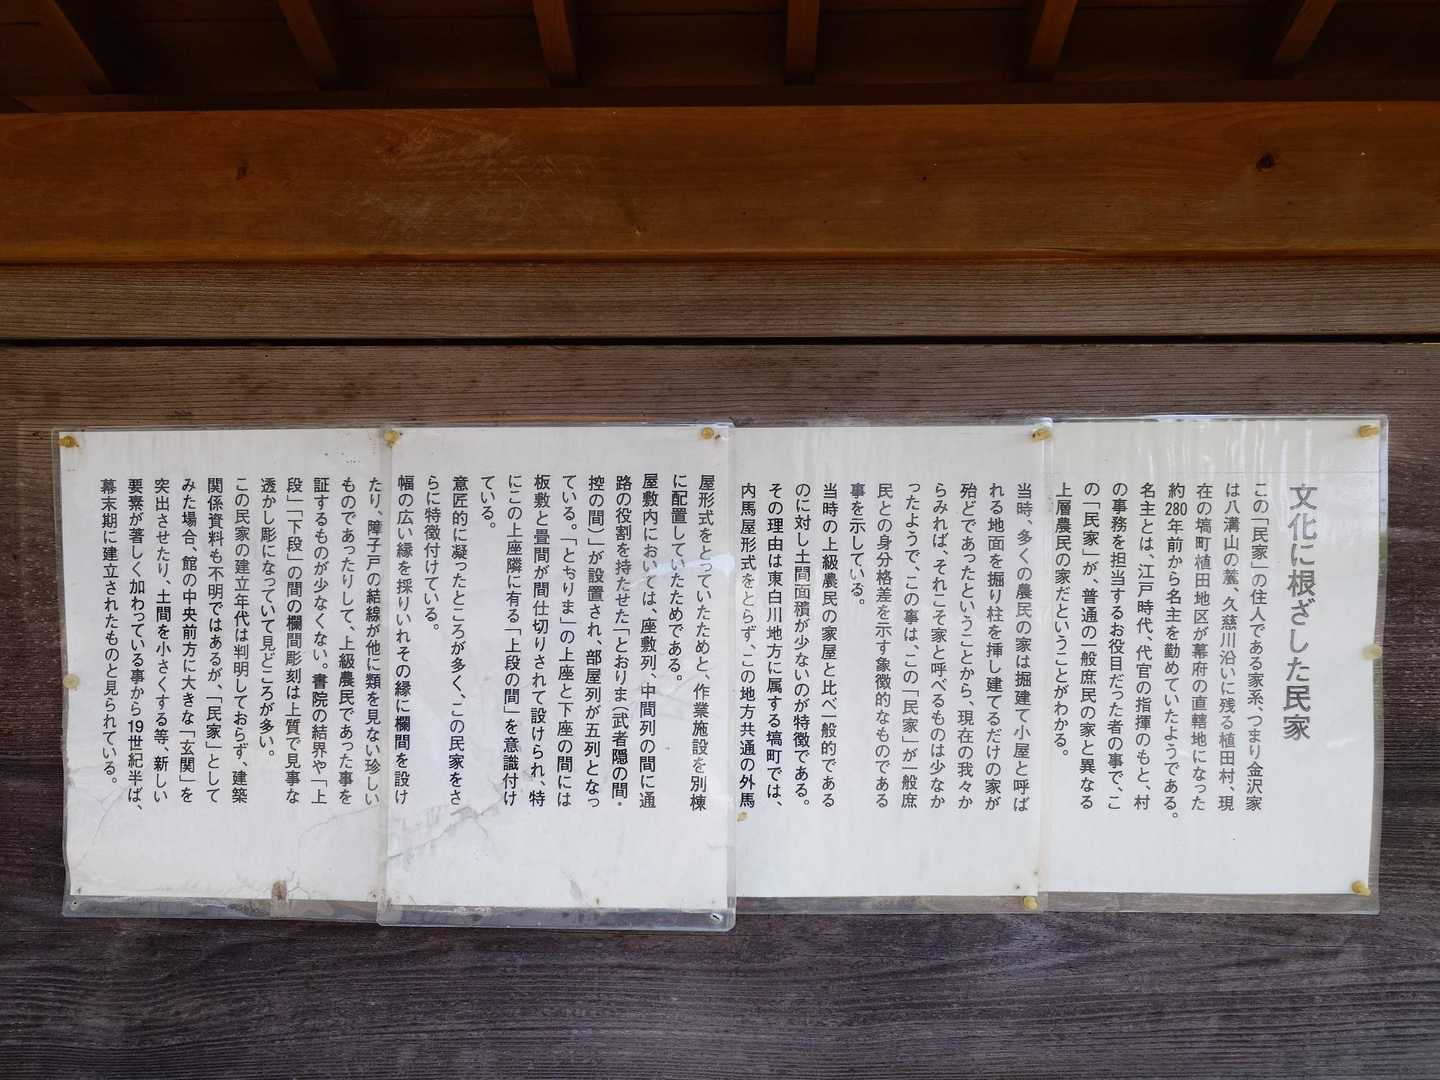 文化に根ざした民家
この「民家」の住人である家系、つまり金沢家
は八溝山の麓、久慈川沿いに残る植田村、現
在の塙町植田地区が幕府の直轄地になった
約280年前から名主を勤めていたようである。
名主とは、江戸時代、代官の指揮のもと、村
の事務を担当するお役目だった者の事で、こ
の「民家」が、普通の一般庶民の家と異なる
上層農民の家だということがわかる。
当時、多くの農民の家は掘建て小屋と呼ば
れる地面を掘り柱を挿し建てるだけの家が
殆どであったということから、現在の我々か
らみれば、それこそ家と呼べるものは少なか
ったようで、この事は、この「民家」が一般庶
民との身分格差を示す象徴的なものである
事を示している。
当時の上級農民の家屋と比べ一般的である
のに対し土間面積が少ないのが特徴である。
その理由は東白川地方に属する塙町では、
内馬屋形式をとらず、この地方共通の外馬
屋形式をとっていたためと、作業施設を別棟
に配置していたためである。
屋敷内においては、座敷列、中間列の間に通
路の役割を持たせた「とおりま(武者隠の間・
控の間)」が設置され、部屋列が五列となっ
ている。「とおりま」の上座と下座の間には
板敷と畳間が間仕切りされて設けられ、特
にこの上座隣に有る「上段の間」を意識付け
ている。
意匠的に凝ったところが多く、この民家をさ
らに特徴付けている。
幅の広い縁を採りいれその縁に欄間を設け
たり、障子戸の結線が他に類を見ない珍しい
ものであったりして、上級農民であった事を
証するものが少なくない。書院の結界や「上
段」「下段」の間の欄間彫刻は上質で見事な
透かし彫になっていて見どころが多い。
この民家の建立年代は判明しておらず、建築
関係資料も不明ではあるが、「民家」として
みた場合、館の中央前方に大きな「玄関」を
突出させたり、土間を小さくする等、新しい
要素が著しく加わっている事から19世紀半ば、
幕末期に建立されたものと見られている。